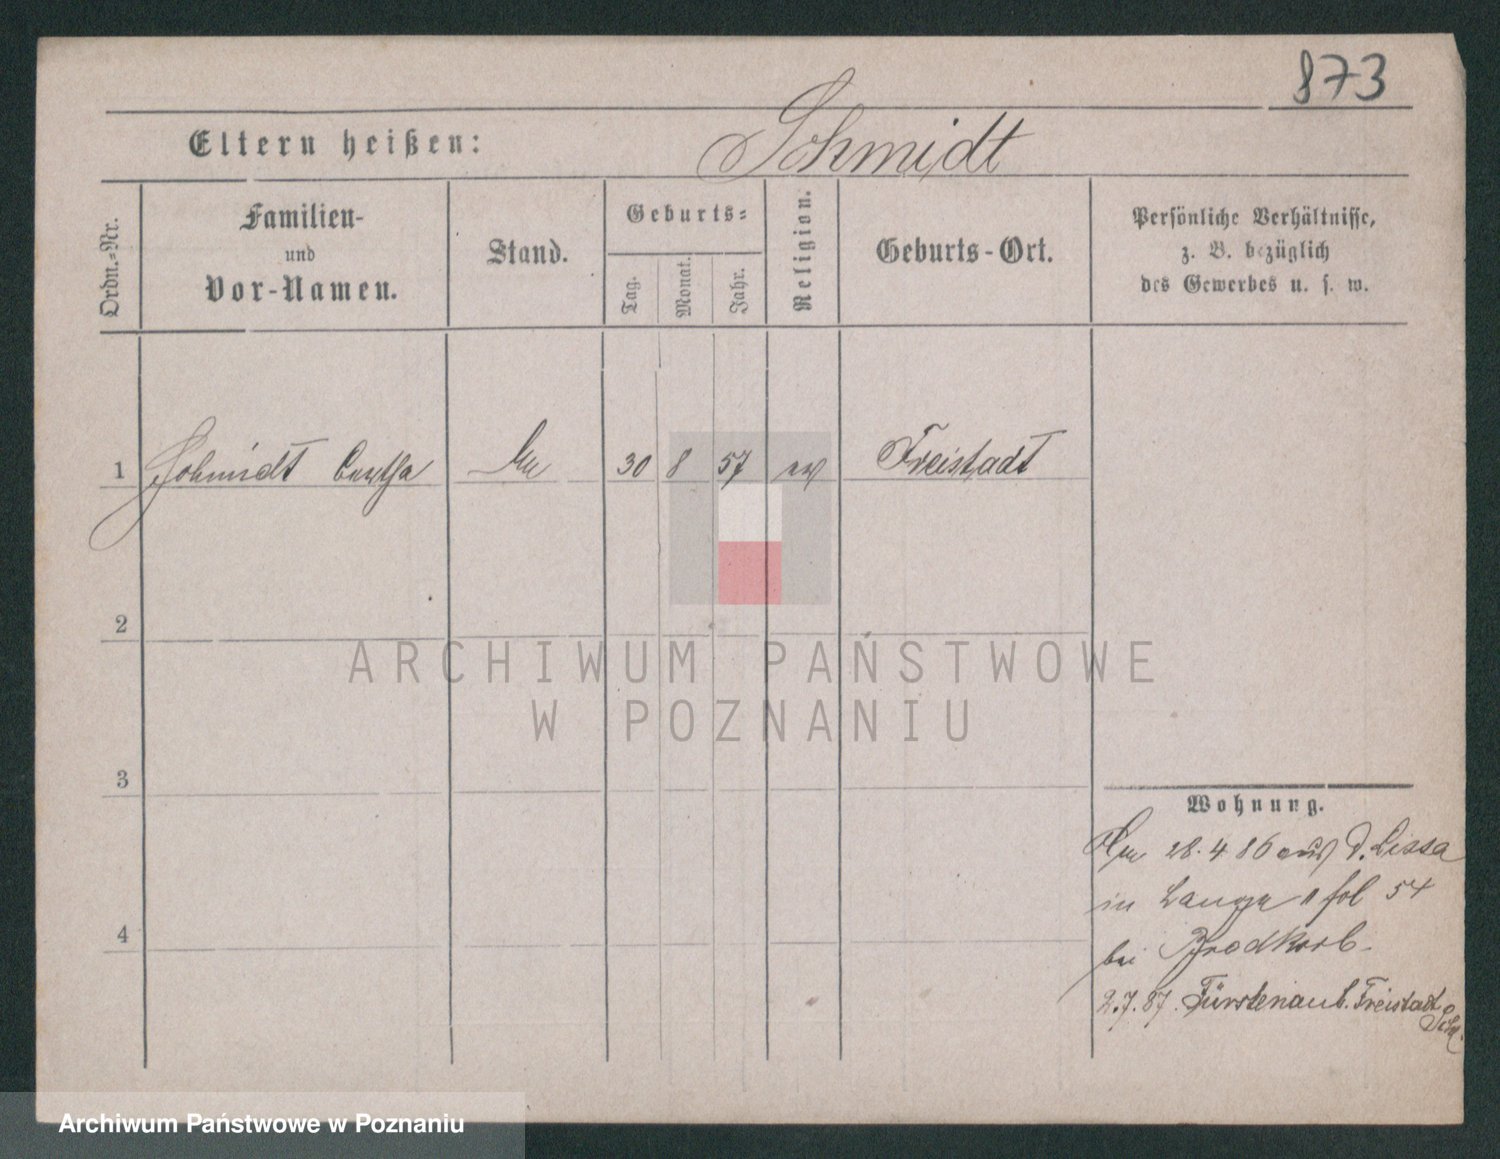 873
Eltern heißen: Schmidt
Ordn.-Nr.
Familien-
und
Vor-Namen.
Stand.
Geburts-
Tag.
Monat.
Jahr.
Religion.
Geburts-Ort.
Persönliche Verhältnisse,
z. B. bezüglich
des Gewerbes u. s. w.
1 Schmidt Bertha 30 8 57 ev Freistadt
2
ARCHIWUM PAŃSTWOWE
W POZNANIU
3
Wohnung.
28.4 86 aus d. Lissa
in Lange fol 54
4
bei Brodkorb
2.7.87. Fürstenau b. Freistadt
Archiwum Państwowe w Poznaniu